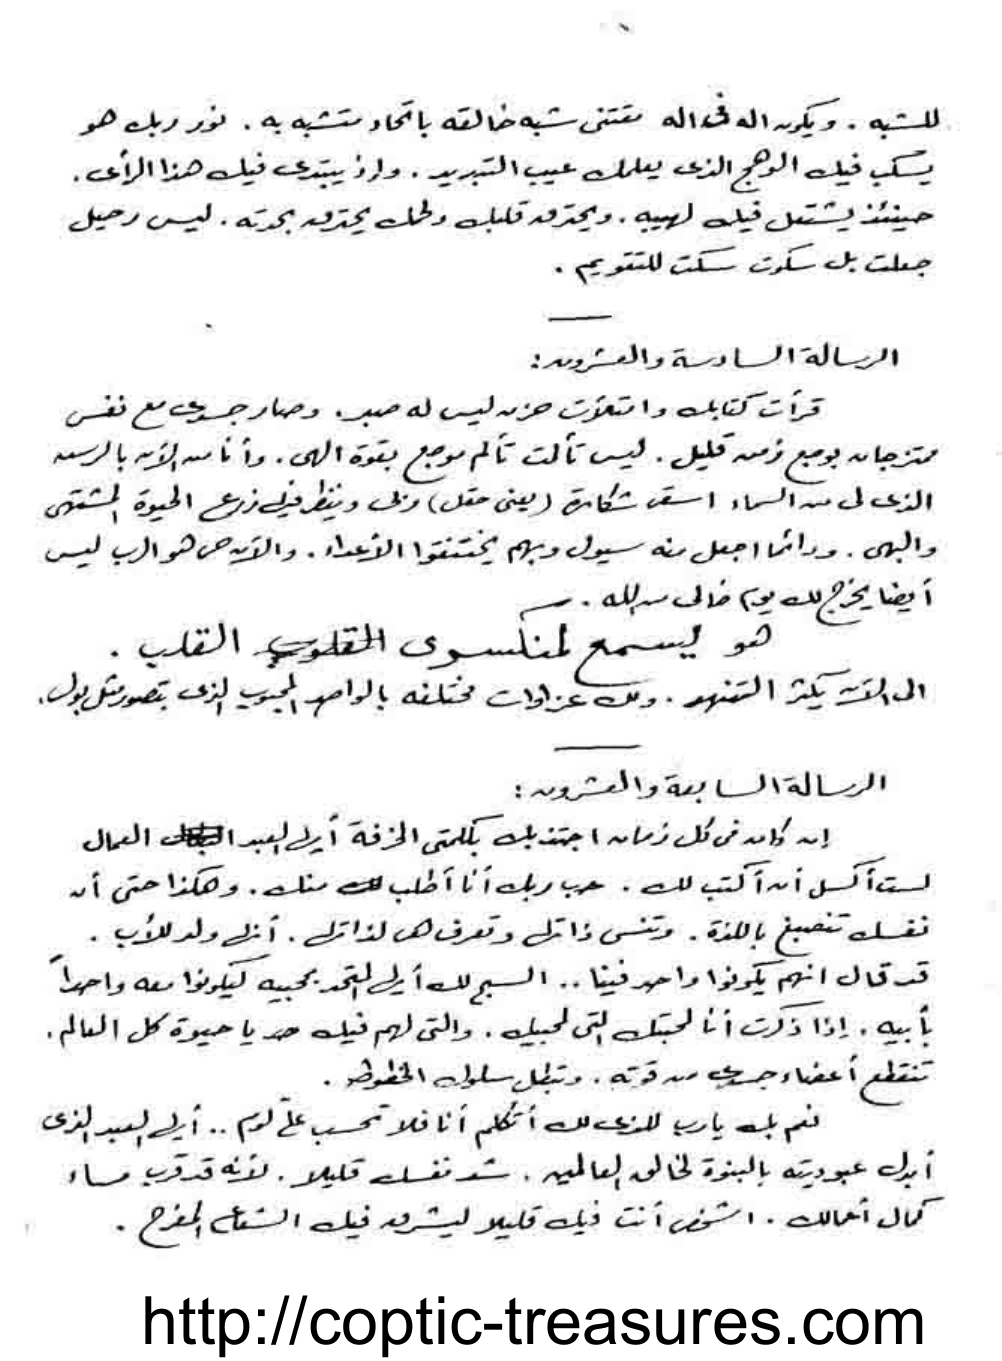 للشبه . ويكون اله فى اله مقتنى شبه خالقه باتحاد متشبه به . نور ربك هو
يسكب فيك الوهج الذى يعلمك عيب التبديد . وإذ يبتدى فيك هذا الرأى .
حينئذ يشتعل فيك لهيبه . ويحترق قلبك ولحمك يحترق بحدته . ليس رحيل
جعلت بل سكوت سكت للتقويم .
الرسالة السادسة والعشرون :
قرأت كتابك وامتلأت حزن ليس له صبر . وصار جسدى مع نفسى
ممتزجان بوجع زمن قليل . ليس تألمت تألم موجع بقوة الهى . وأنا من الآن بالرسن
الذى لى من السماء اسقى شكارة ( يعنى حقل ) وينظر فيك زرع الحيوة المشتهى
والبهى . ودائما اجعل منه سيول وبهم يختنقوا الأعداء . والآن حى هو الرب ليس
أيضا يخرج لك يوم خالى من الله .
هو يسمع لمنكسرى القلب .
الى الآن يكثر التنهد . ولك عزاوات مختلفه بالواحد المحبوب الذى بتصور مثل بولس .
الرسالة السابعة والعشرون :
إن كان فى كل زمان اجتذبك بكلمتى الخزفة أيها العبد العمال
لست أكسل أن أكتب لك . حب ربك أنا أطلب منك . وهكذا حتى أن
نفسك تنصبغ باللذة . وتنسى ذاتها وتعرف هى لذاتها . أنها ولد للأب .
قد قال انهم يكونوا واحد فينا .. السبح لك أيها المتحد بمحبيه ليكونوا معه واحداً
بأبيه . إذا ذكرت أنا لمحبتك التى لمحبيك . والتى لهم فيك حد يا حيوة كل العالم .
تنقطع أعضاء جسدى من قوته . وتبطل سلوك الخطوط .
نعم بك يارب للذى لك أتكلم أنا فلا تحسب علىّ لوم .. أيها العبد الذى
أبدل عبوديته بالبنوة لخالق العالمين . شد نفسك قليلا . لأنه قد قرب مساء
كمال أعمالك . اشخص أنت فيك قليلا ليشرق فيك الشعاع المفرح .
http://coptic-treasures.com